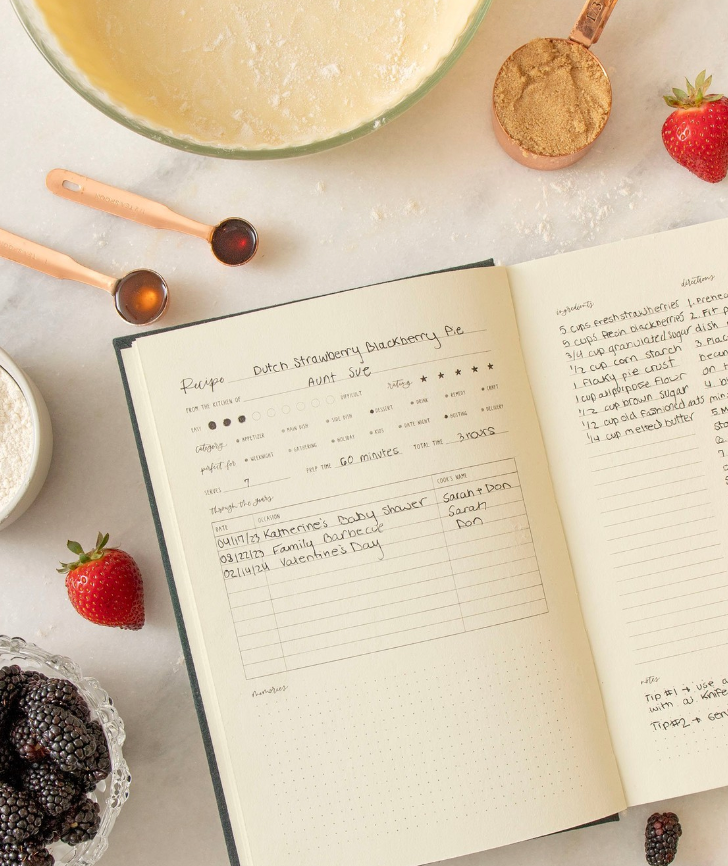 Recipe Dutch Strawberry Blackberry Pie
FROM THE KITCHEN OF Aunt Sue
EASY DIFFICULT rating
category APPETIZER MAIN DISH SIDE DISH DESSERT DRINK REMEDY CRAFT
perfect for WEEKNIGHT GATHERING HOLIDAY KIDS DATE NIGHT HOSTING DELIVERY
SERVES 7 PREP TIME 60 minutes TOTAL TIME 3 hours
through the years
DATE OCCASION COOK'S NAME
04/17/23 Katherine's Baby Shower Sarah + Don
08/22/23 Family Barbecue Sarah
02/14/24 Valentine's Day Don
memories
ingredients
5 cups fresh strawberries
5 cups fresh blackberries
3/4 cup granulated sugar
1/2 cup corn starch
1 flaky pie crust
1 cup all purpose flour
1/2 cup brown sugar
1/2 cup old fashioned oats
1/4 cup melted butter
directions
1. Prehe
2. Fit p
dish
3. Plac
on
4.
min
5.
7.
notes
Tip #1 → use a
with a knife
Tip #2 →